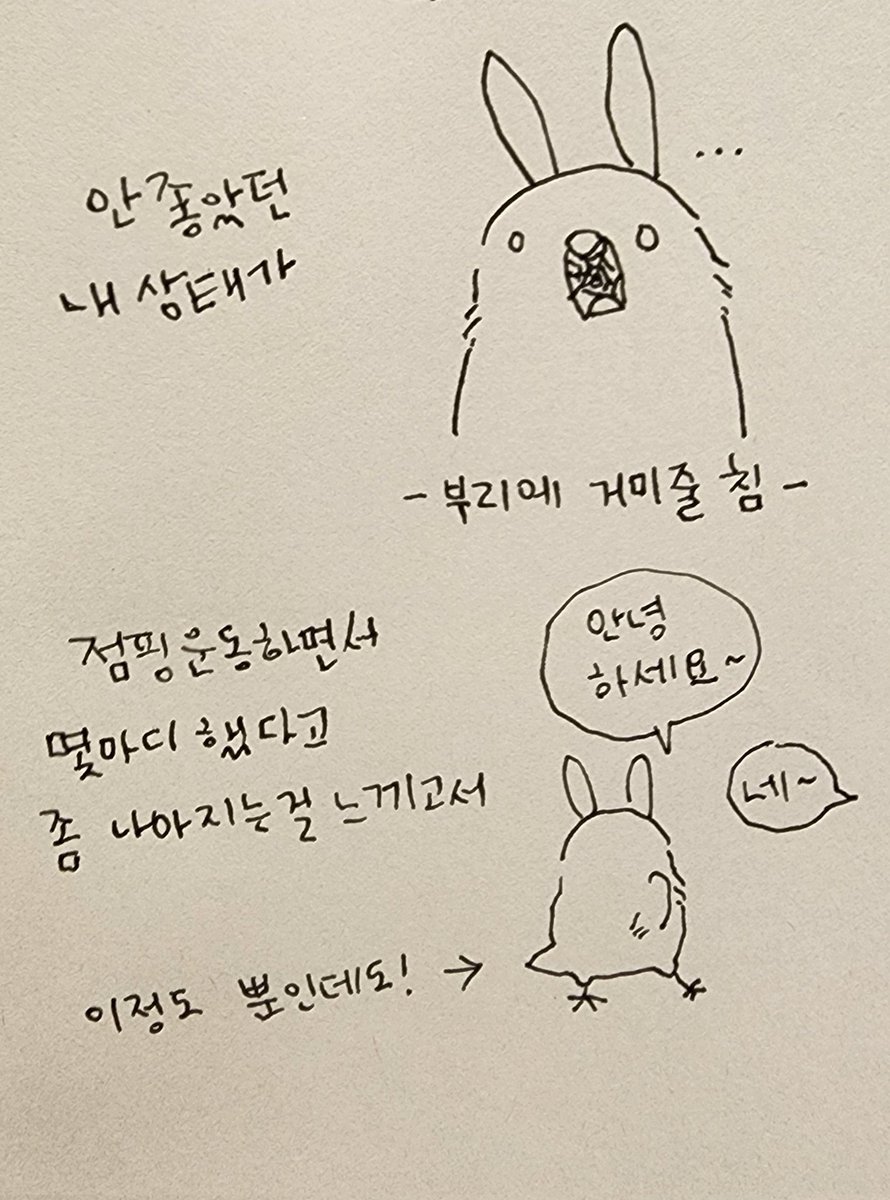 안좋았던
내 상태가
...
- 부리에 거미줄 침 -
점핑운동하면서
몇마디 했다고
좀 나아지는걸 느끼고서
안녕
하세요~
네~
이정도 뿐인데도! →